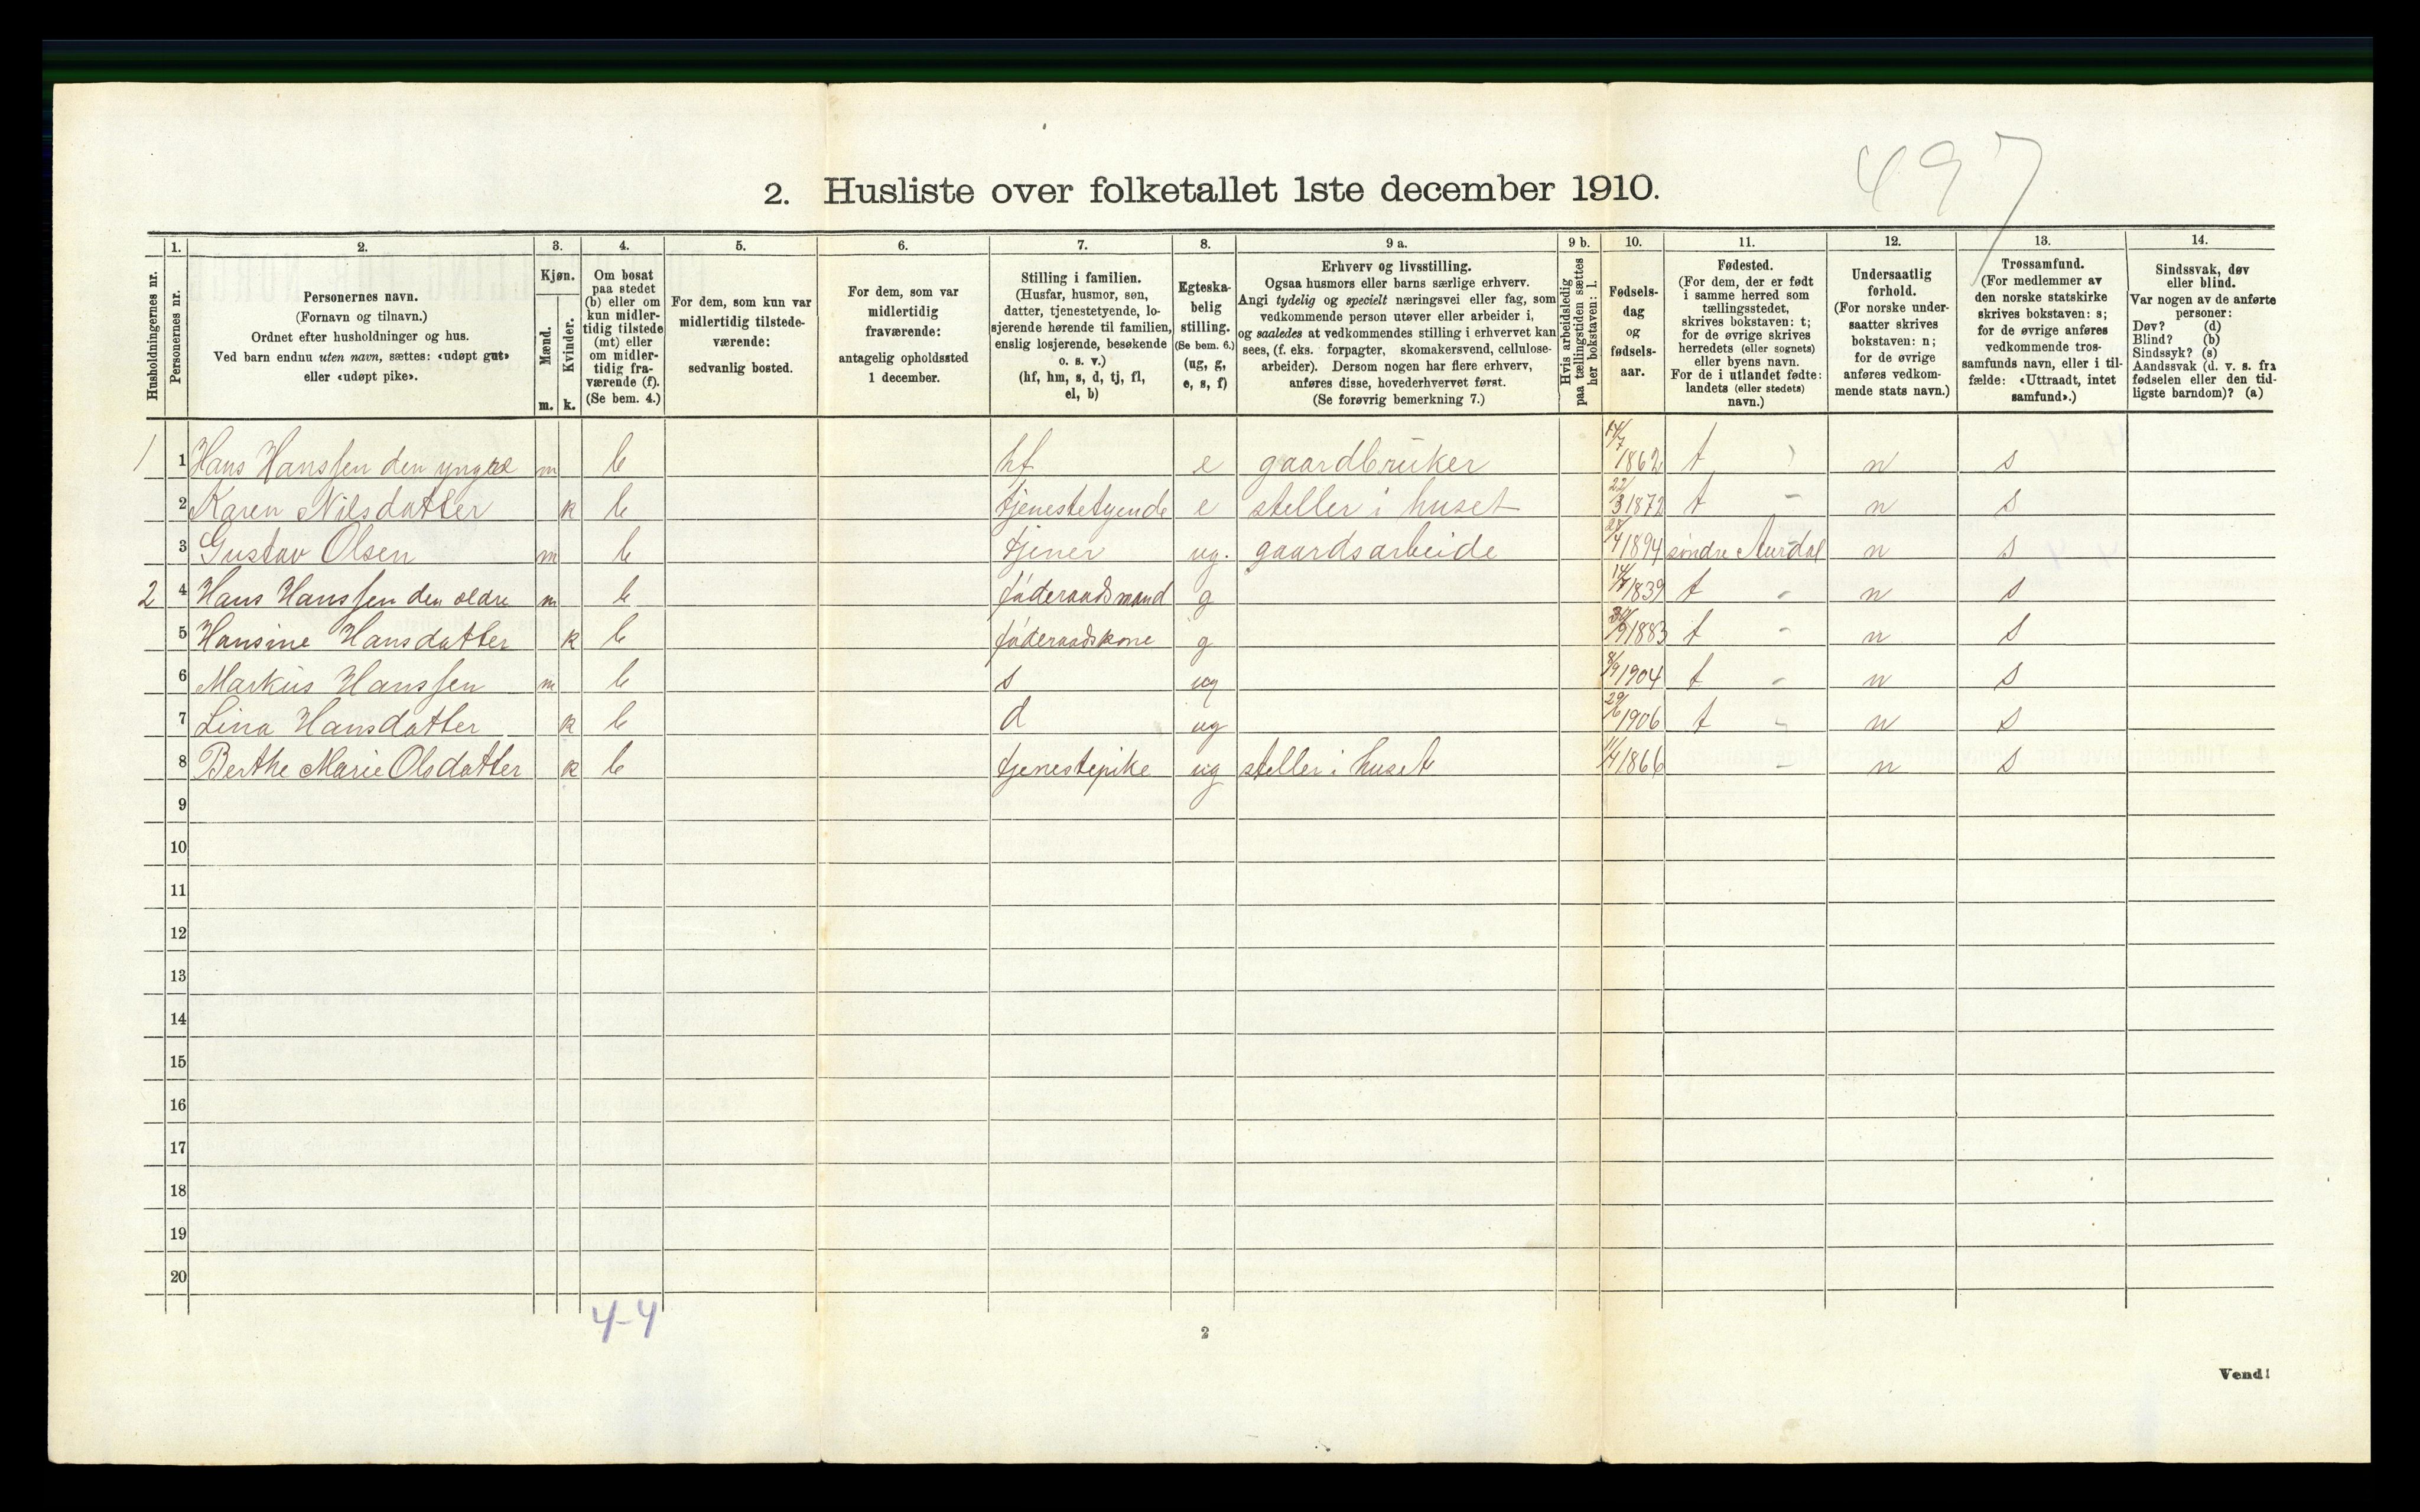 497
2. Husliste over folketallet 1ste december 1910.
Husholdningernes nr.
1.
Personernes nr.
2.
Personernes navn.
(Fornavn og tilnavn.)
Ordnet efter husholdninger og hus.
Ved barn endnu uten navn, sættes: «udøpt gut»
eller «udøpt pike».
3.
Kjøn.
Mænd.
Kvinder.
m. k.
4.
Om bosat
paa stedet
(b) eller om
kun midler-
tidig tilstede
(mt) eller
om midler-
tidig fra-
værende (f).
(Se bem. 4.)
5.
For dem, som kun var
midlertidig tilstede-
værende:
sedvanlig bosted.
6.
For dem, som var
midlertidig
fraværende:
antagelig opholdssted
1 december.
7.
Stilling i familien.
(Husfar, husmor, søn,
datter, tjenestetyende, lo-
sjerende hørende til familien,
enslig losjerende, besøkende
o. s. v.)
(hf, hm, s, d, tj, fl,
el, b)
8.
Egteska-
belig
stilling.
(Se bem. 6.)
(ug, g,
e, s, f)
9 a.
Erhverv og livsstilling.
Ogsaa husmors eller barns særlige erhverv.
Angi tydelig og specielt næringsvei eller fag, som
vedkommende person utøver eller arbeider i,
og saaledes at vedkommendes stilling i erhvervet kan
sees, (f. eks. forpagter, skomakersvend, cellulose-
arbeider). Dersom nogen har flere erhverv,
anføres disse, hovederhvervet først.
(Se forøvrig bemerkning 7.)
9 b.
Hvis arbeidsledig
paa tællingstiden sættes
her bokstaven: l.
10.
Fødsels-
dag
og
fødsels-
aar.
11.
Fødested.
(For dem, der er født
i samme herred som
tællingsstedet,
skrives bokstaven: t;
for de øvrige skrives
herredets (eller sognets)
eller byens navn.
For de i utlandet fødte:
landets (eller stedets)
navn.)
12.
Undersaatlig
forhold.
(For norske under-
saatter skrives
bokstaven: n;
for de øvrige
anføres vedkom-
mende stats navn.)
13.
Trossamfund.
(For medlemmer av
den norske statskirke
skrives bokstaven: s;
for de øvrige anføres
vedkommende tros-
samfunds navn, eller i til-
fælde: «Uttraadt, intet
samfund».)
14.
Sindssvak, døv
eller blind.
Var nogen av de anførte
personer:
Døv? (d)
Blind? (b)
Sindssyk? (s)
Aandssvak (d. v. s. fra
fødselen eller den tid-
ligste barndom)? (a)
1 1 Hans Hanssen den yngre m b hf e gaardbruker 14/7 1862 t n s
2 Karen Nilsdatter k b tjenestetyende e steller i huset 22/3 1872 t - n s
3 Gustav Olsen m b tjener ug. gaardsarbeide 1894 søndre Aurdal n s
2 4 Hans Hanssen den ældre m b føderaadsmand g 1839 t - n s
5 Hansine Hansdatter k b føderaadskone g 30/9 1883 t - n s
6 Markus Hanssen m b s ug 8/9 1904 t - n s
7 Lina Hansdatter k b d ug 29/6 1906 t - n s
8 Berthe Marie Olsdatter k b tjenestepike ug steller i huset 1866 - n s
9
10
11
12
13
14
15
16
17
18
19
20
4-4
2
Vend!